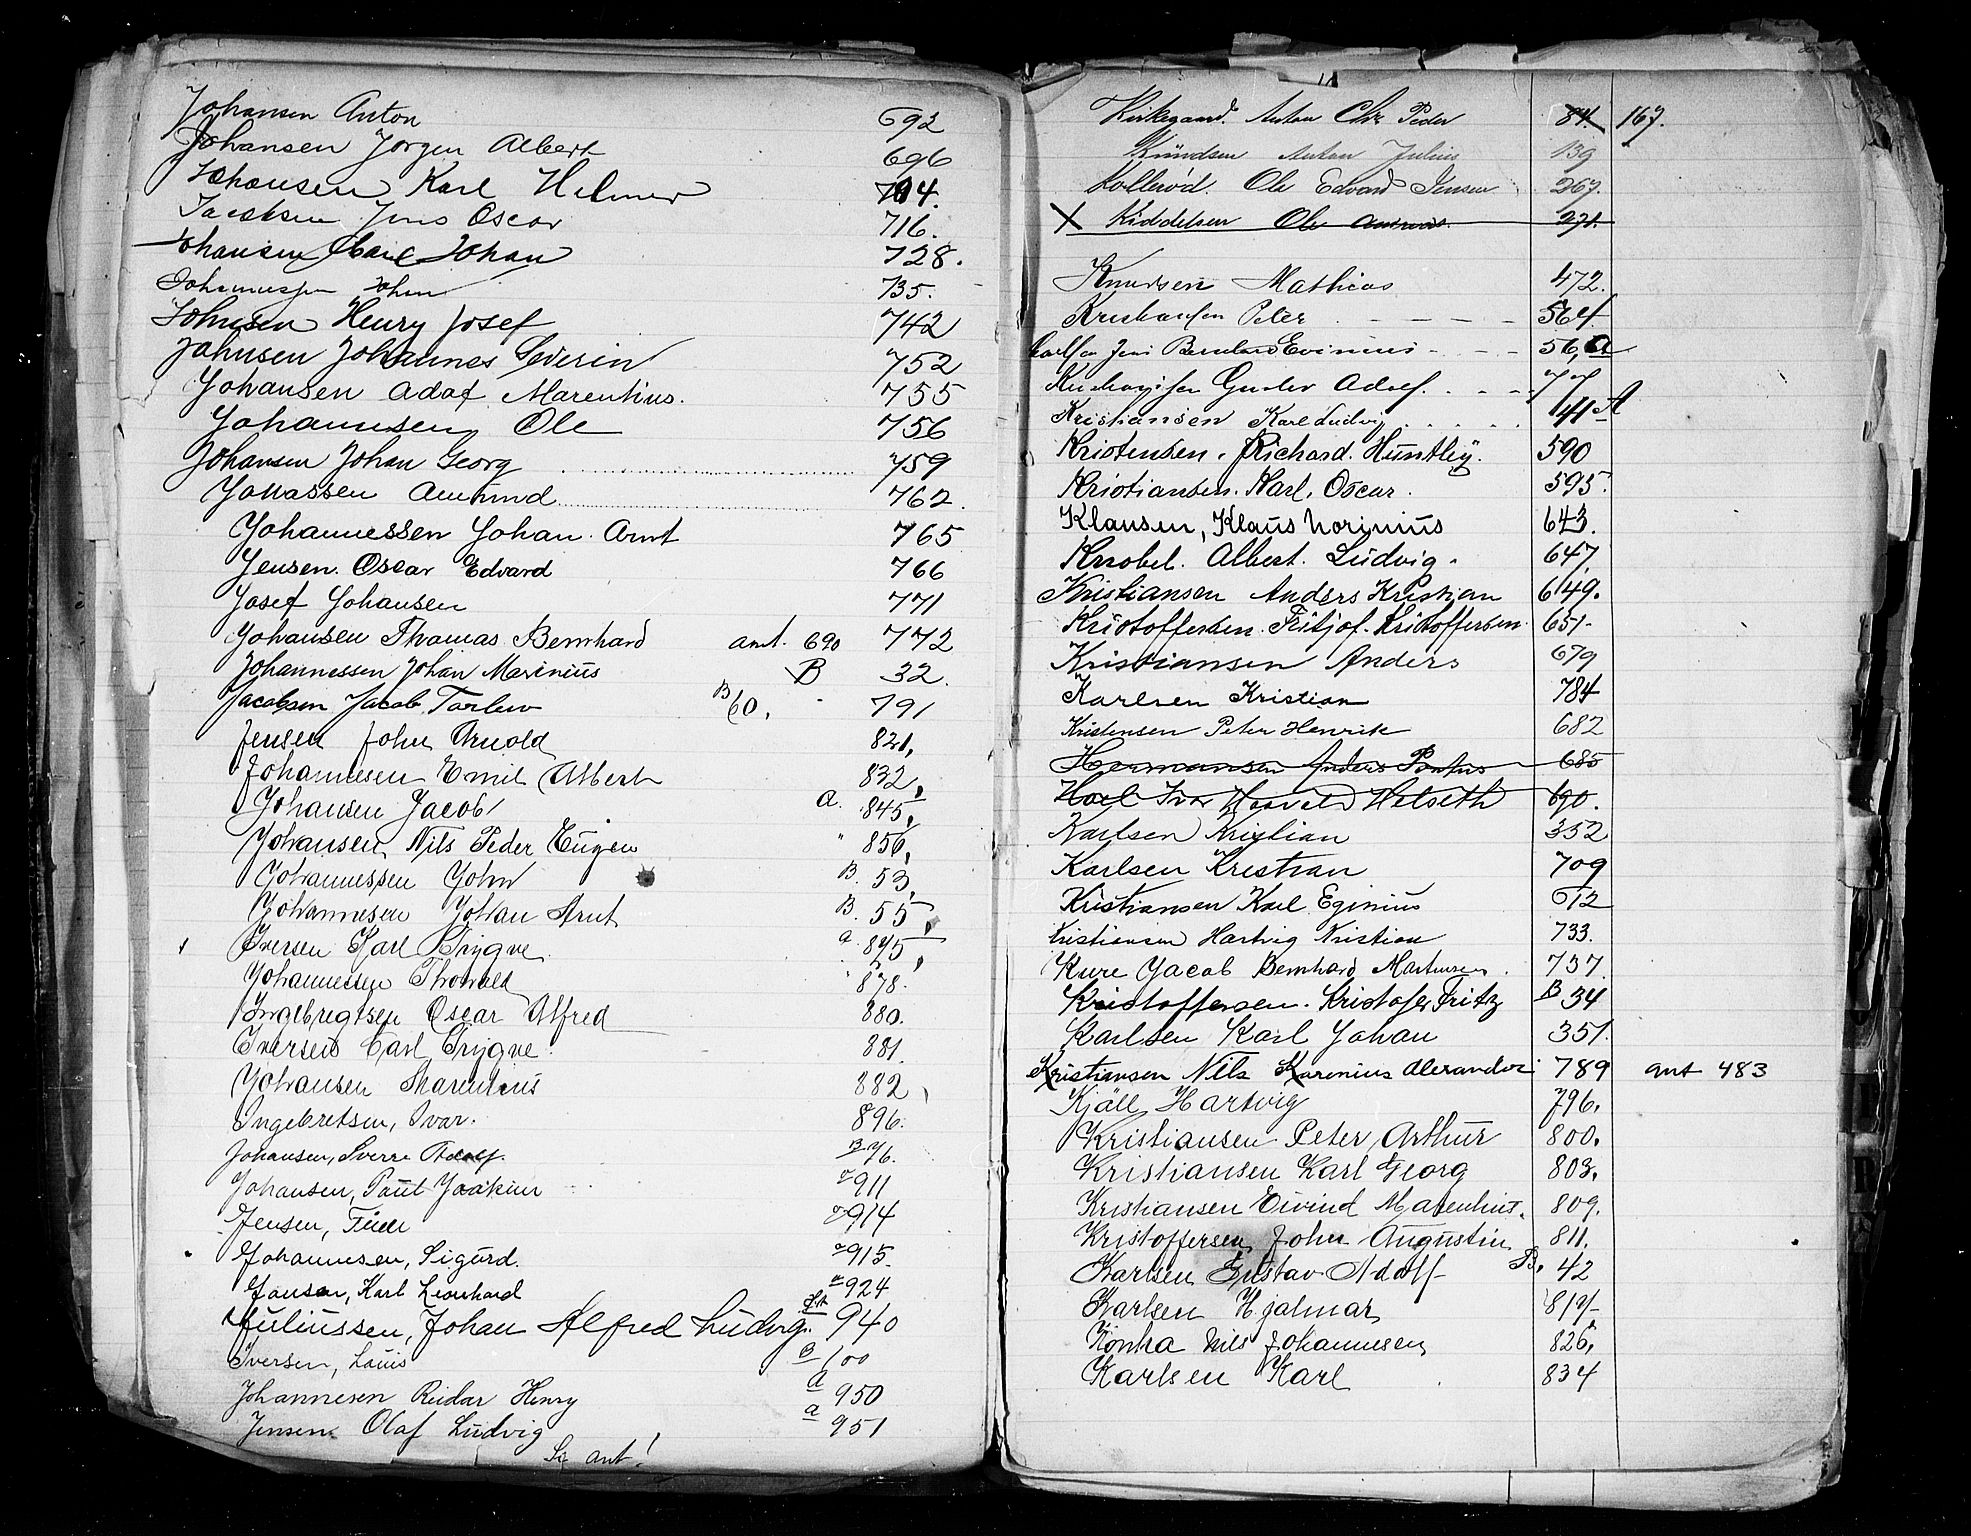 Johansen Anton 692
Johansen Jørgen Albert 696
Johansen Karl Helmer 704.
Jacobsen Jens Oscar 716.
Johansen Carl Johan 728.
Johannessen John 735.
Johnsen Henry Josef 742
Johnsen Johannes Severin 752
Johansen Adof Marentius. 755
Johannsen, Ole 756
Johansen Johan Georg 759
Jonassen Amund 762.
Johannessen Johan Arnt 765
Jensen. Oscar Edvard 766
Josef Johansen 771
Johansen Thomas Bernhard amt. 690 772
Johannessen Johan Marinius B 32.
Jacobsen Jacob Tarlew B 60, 791
Jensen John Arnold 821,
Johannesen Emil Albert 832,
Johansen Jacob a. 845,
Johansen, Nils Peder Eugen " 856,
Johannessen John B. 53,
Johannesen Johan Arnt B. 55,
Iversen Karl Trygve a 875,
Johannessen Thorvald " 878.
Ingebregtsen Oscar Alfred 880.
Iversen Carl Trygve. 881.
Johansen Marentius 882,
Ingebretsen, Ivar. 896.
Johansen, Sverre Adolf. B 76.
Johansen, Paul Joakim a 911
Jensen, a 914
Johannesen, Sigurd. a 915.
Jansen, Karl Leonhard a 924
Juliussen, Johan Alfred Ludvig. A 940
Iversen, Louis B 100
Johannesen Reidar Henry a 950
Jensen Olaf Ludvig a 951
Se ant!
Kirkegaard. Anton Chr. Peder 84. 167.
Knudsen Anton Julius 139
Kollerød. Ole Edvard Jensen 267.
X Kiddelsen Ole 221.
Knudsen Mathias 472.
Kristiansen Peter 564.
Carlsen Jens Bernhard Evinius 56, a
Gustav Adolf.
Kristiansen Karl Ludvig 41 A
Kristensen. Richard. Huntley. 590
Kristiansen. Karl. Oscar. 595.
Klausen, Klaus Norinius 643.
Knobel. Albert. Ludvig. 647,
Kristiansen Anders Kristian 649.
Kristoffersen. Fritjof. Kristoffersen 651.
Kristiansen Anders 679
Karlsen Kristian 784
Kristensen Peter Henrik 682
Hermansen Anders Pontus 685
Hoel Ivar Haavald Helseth 690.
Karlsen Kristian 352
Karlsen Kristian 709
Kristiansen Karl Eginius 612
Kristiansen Hartvig Kristian 733.
Kure Jacob Bernhard Martinsen. 737.
Kristoffersen. Kristofer Fritz B 34
Karlsen Karl Johan 351.
Kristiansen Nils Karenius Alexander 789 amt 483
Kjäll, Hartvig 796.
Kristiansen Peter Arthur 800.
Kristiansen Karl Georg 803.
Kristiansen Eivind Marentius. 809.
Kristoffersen John Augustin 811,
Karlsen Gustav Adolf B. 42
Karlsen Hjalmar 817
Konka Nils Johannesen 826,
Karlsen Karl 834